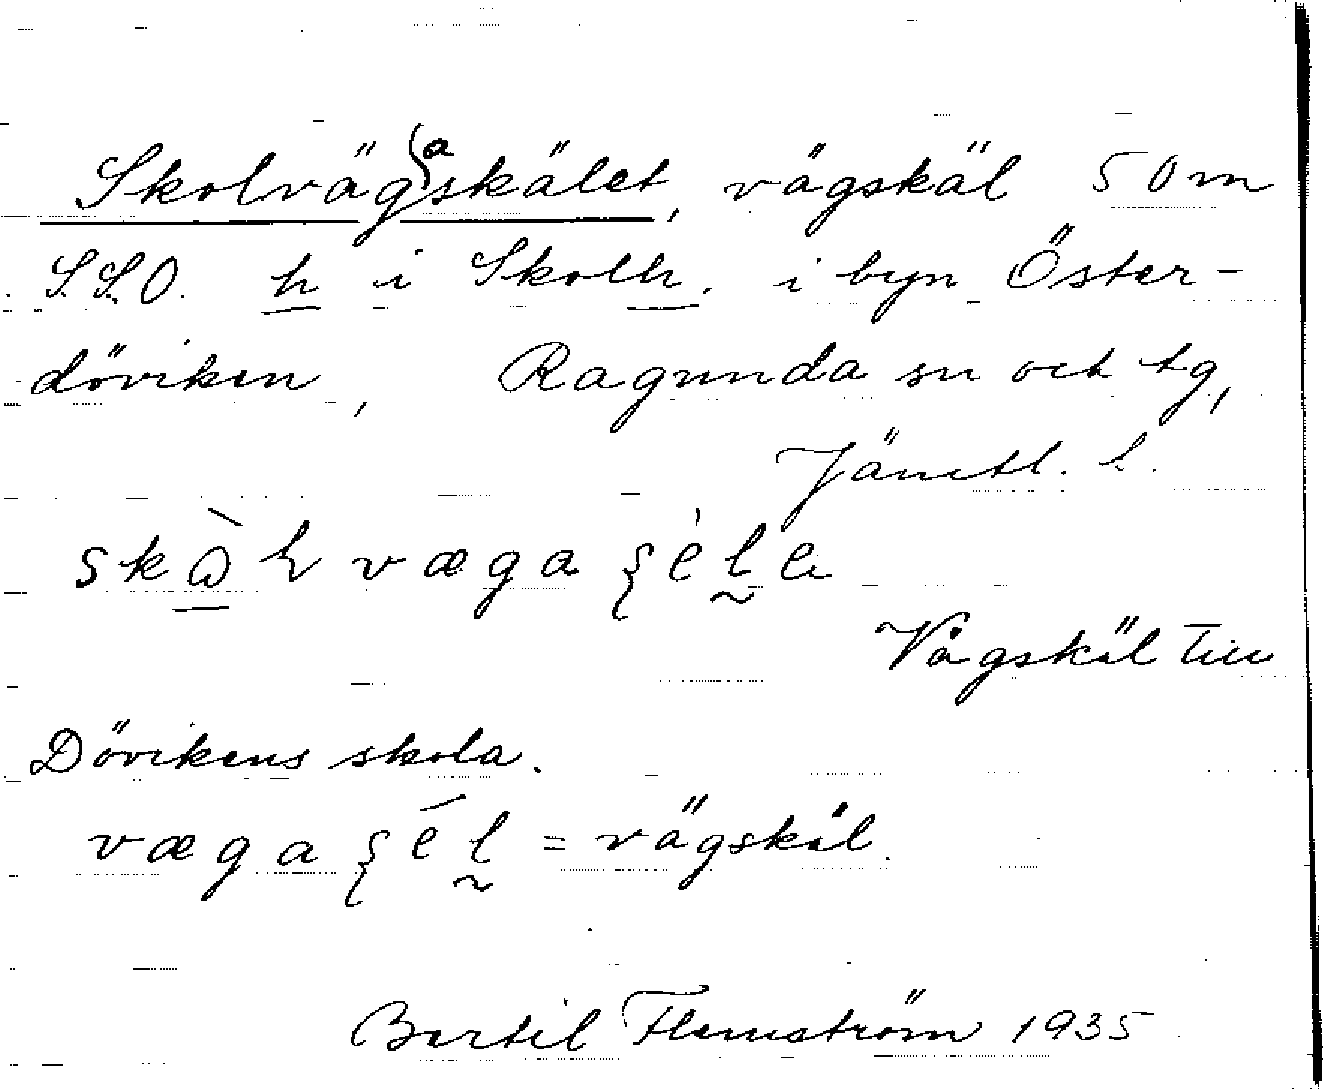 Skolväg(a)skälet, vägskäl 50 m
S.S.O. h i Skolh. i byn Öster-
döviken, Ragunda sn och tg,
Jämtl. l.
Vägskäl till
Dövikens skola.
= vägskäl.
Bertil Flemström 1935